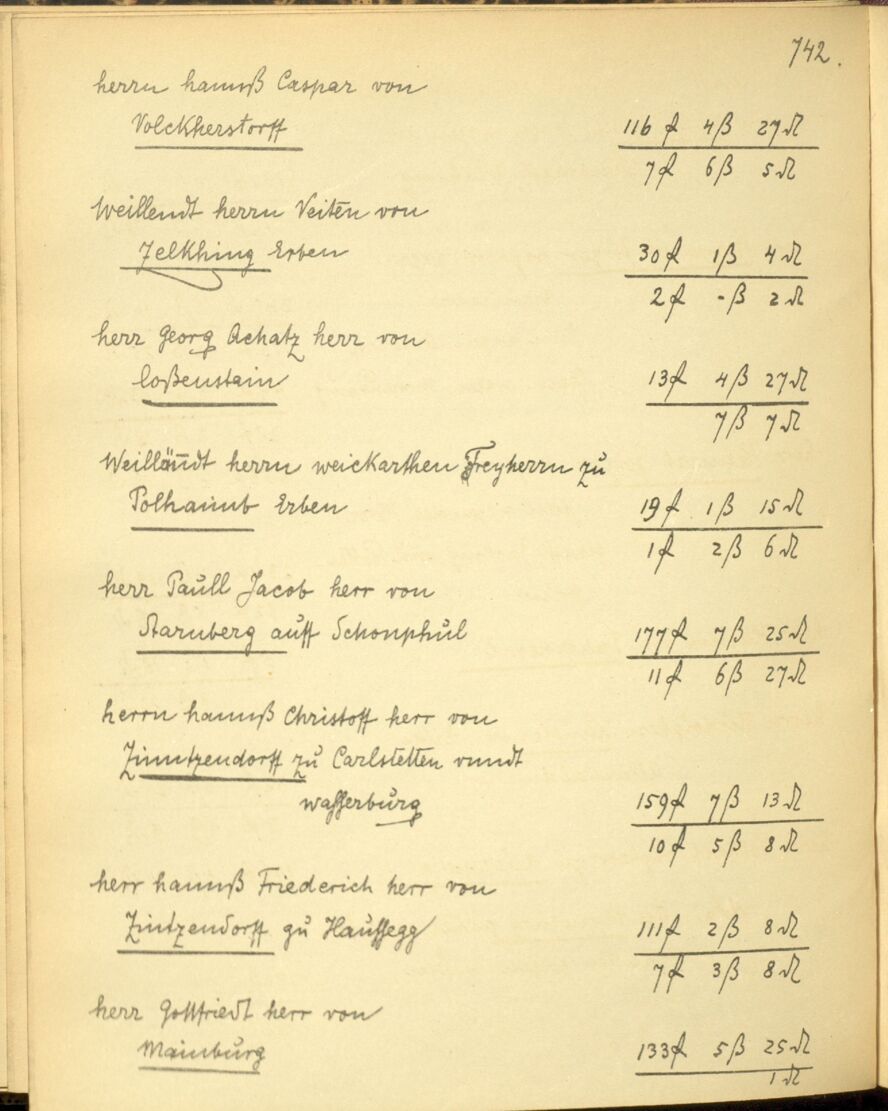 742.
herrn hannß Caspar von
Volckherstorff 116 f 4 ß 27 ₰
7 f 6 ß 5 ₰
Weillendt herrn Veiten von
Zelkhing Erben 30 f 1 ß 4 ₰
2 f - ß 2 ₰
herr Georg Achatz herr von
Loßenstain 13 f 4 ß 27 ₰
7 ß 7 ₰
herrn weickarthen Freyherrn zu
Polhaimb Erben 19 f 1 ß 15 ₰
1 f 2 ß 6 ₰
herr Paull Jacob herr von
Starnberg auff Schonphul 177 f 7 ß 25 ₰
11 f 6 ß 27 ₰
herrn hannß Christoff herr von
Zinntzendorff zu Carlstetten vnndt
wasserburg 159 f 7 ß 13 ₰
10 f 5 ß 8 ₰
herr hannß Friederich herr von
Zintzendorff zu Haussegg 111 f 2 ß 8 ₰
7 f 3 ß 8 ₰
herr Gottfriedt herr von
Mainburg 133 f 5 ß 25 ₰
1 ₰